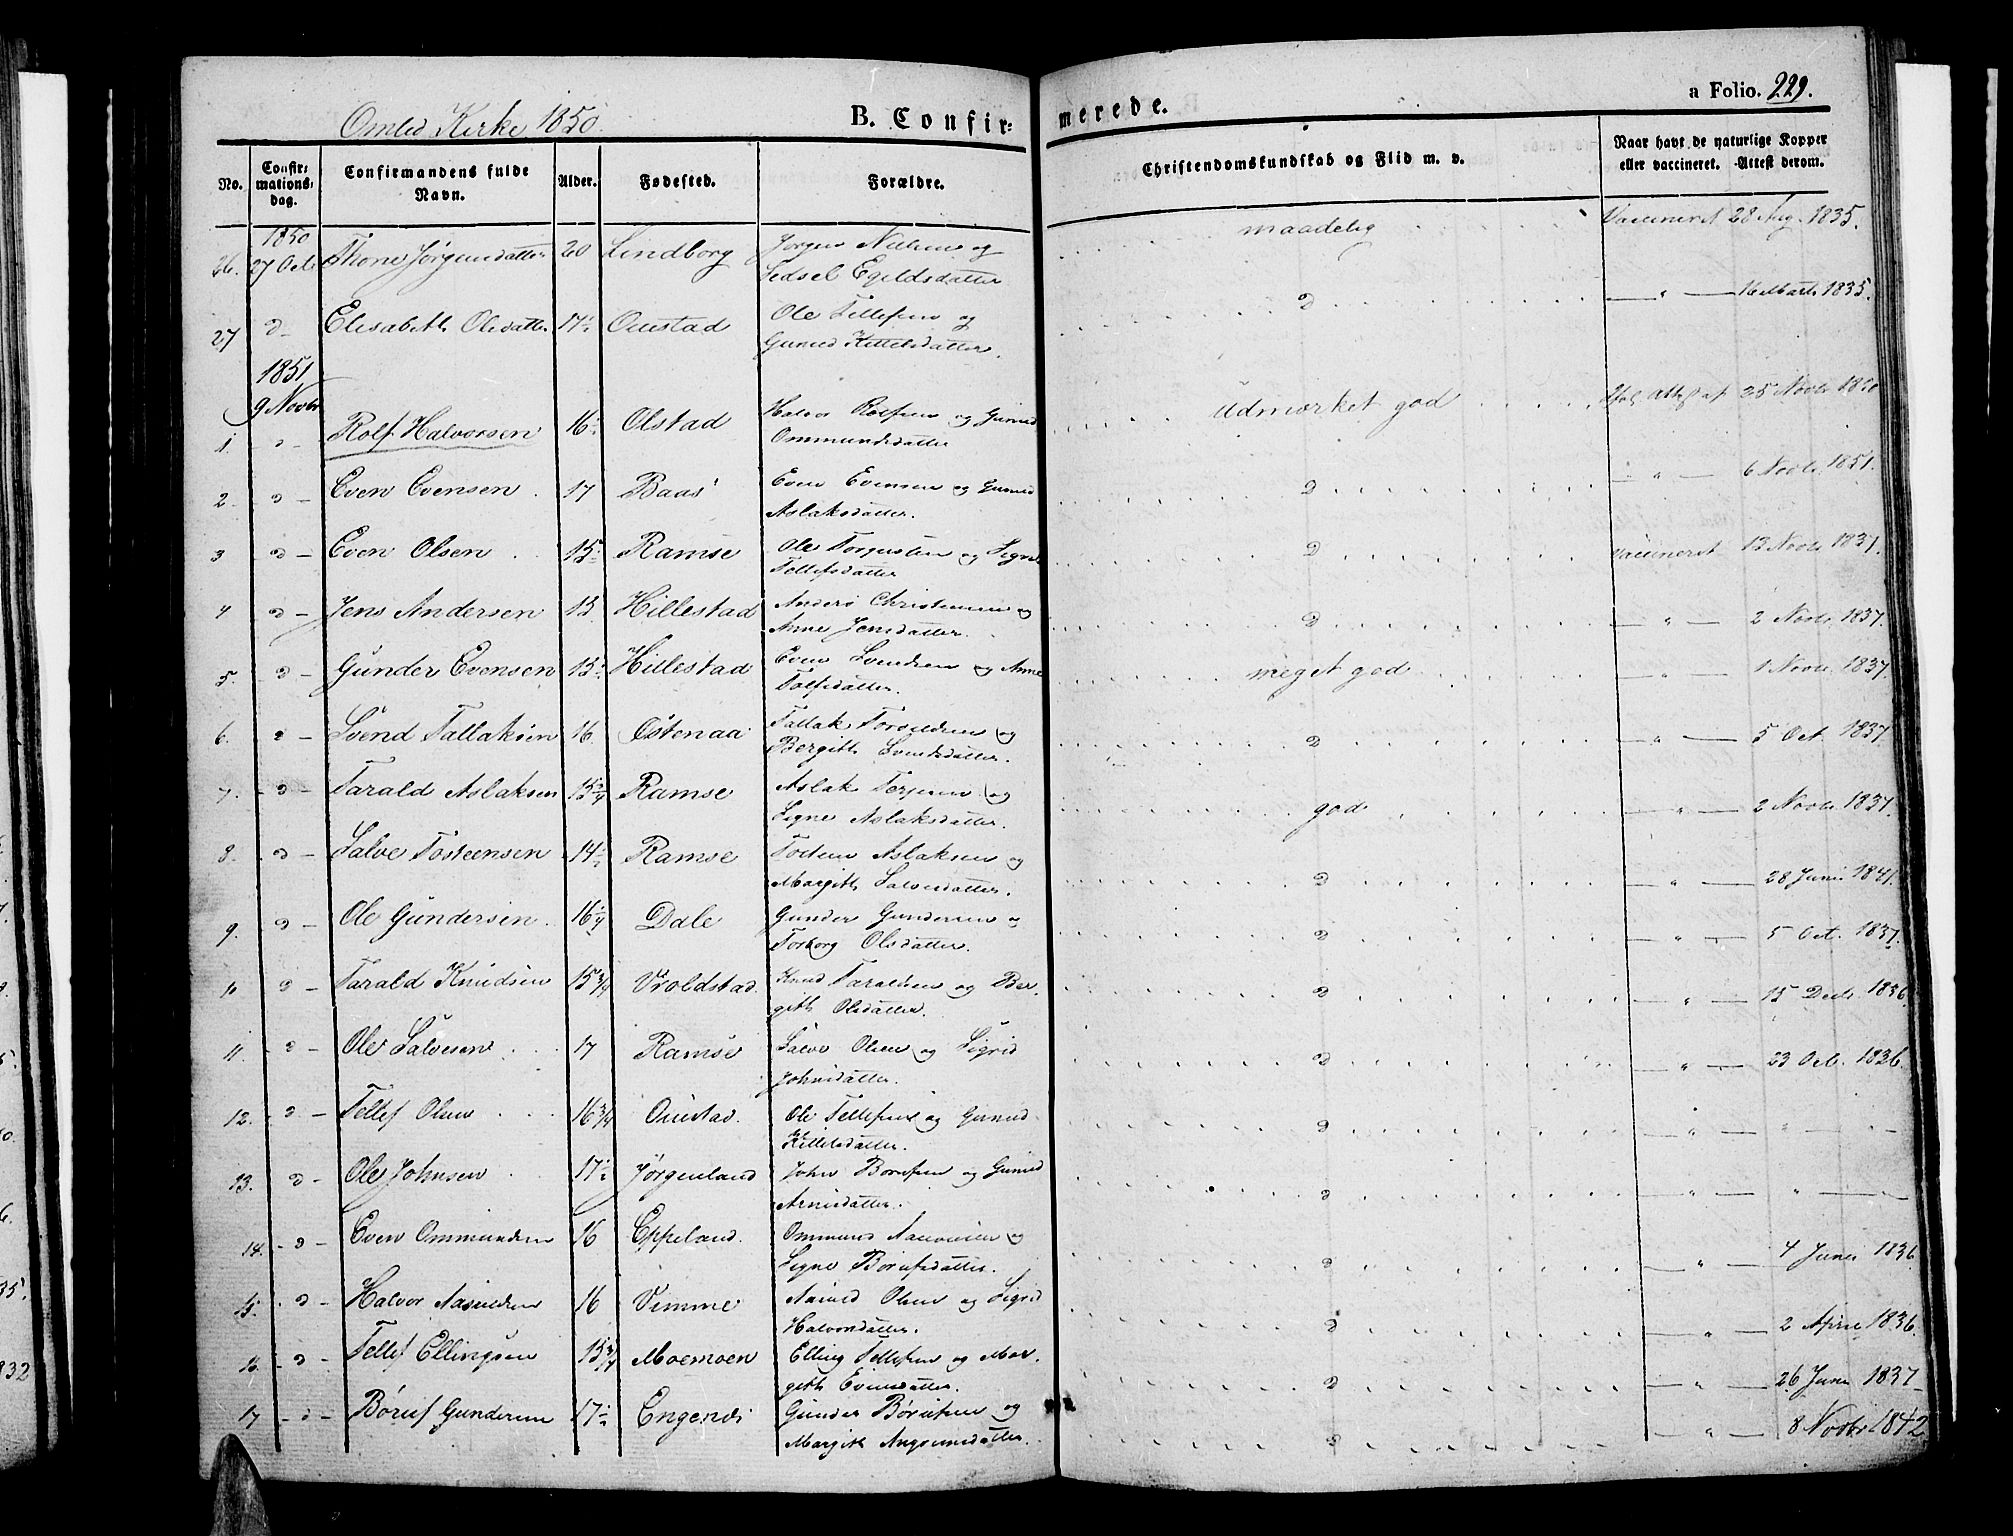 Omlid Kirke 1850.
B. Confir-
merede.
a Folio. 229.
No. Confirmationsdag. Confirmandens fulde Navn. Alder. Fødested. Forældre. Christendomskundskab og Flid m. v. Naar havt de naturlige Kopper eller vaccineret. Attest derom.
1850
26. 27 Oct. Thone Jørgensdatter 20 Lindborg Jørgen Nielsen og maadelig Vaccineret 28 Aug. 1835.
Sedsel Egildsdatter
27 D- Elisabeth Olsdatter 17½ Ouestad Ole Tellefsen og D — " — 16 Marts 1835.
Guned Kittelsdatter.
1851
9 Novbr
1. D- Rolf Halvorsen 16½ Olstad Halvor Rolfsen og Guned udmærket god Attest af 25 Novbr 1850
Ommundsdatter
2. D - Even Evensen 17 Baas Even Evensen og Guned D — " — 6 Novbr. 1851.
Aslaksdatter.
3 D - Even Olsen 15½ Ramse Ole Torgusen og Signe D Vaccineret 13 Novbr. 1837.
Tellefsdatter
4 D - Jens Andersen 15 Hillestad Anders Christensen og D — " — 2 Novbr. 1837.
Anne Jensdatter.
5. D - Gunder Evensen 15½ Hillestad Even Svendsen og Anne meget god — " — 1 Novbr. 1837
datter.
6. D - Svend Tallaksen 16 Østenaa Tallak og D — " — 5 Oct. 1837
Bergith Svendsdatter.
7. - D - Tarald Aslaksen 15¾ Ramse Aslak Terjesen og god — " — 2 Novbr. 1837.
Signe Aslaksdatter.
8. - D - Salve Tosteensen 14½ Ramse Tosten Aslaksen og D — " — 28 Juni 1841.
Margith Salvesdatter.
9. D - Ole Gundersen. 16¼ Dale Gunder Gundersen og D — " — 5 Oct. 1837.
Torborg Olsdatter.
10 D - Tarald Knudsen 15 3/4 Vroldstad. Knud Taraldsen og Ber- D — " — 15 Decbr. 1836
gith Olsdatter.
11. - D - Ole Salvesen 17 Ramse Salve Olsen og Sigrid D — " — 23 Oct. 1836.
Johnsdatter.
12. - D - Tellef Olsen 16 3/4 Ouestad. Ole Tellefsen og Guned D — " —
Kittelsdatter.
13. D - Ole Johnsen 17½ Jørgenland John Børufsen og Guned D — " — " —
Arnesdatter.
14. - D - Even Ommundsen 16 Eppeland. Ommund Aanonsen og D — " — 4 Juni 1836
Signe Børufsdatter.
15. - D - Halvor Aasuldsen 16 Vimme Olsen og Sigrid D — " — 2 April 1836.
Halvorsdatter.
16. - D - Tellef Ellingsen 15 3/4 Moemoen Elling Tellefsen og Mar- D — " — 26 Juni 1837
geth Evensdatter.
17 - D - Børuf Gundersen 17½ Engenes Gunder Børufsen og D — " — 8 Novbr 1842
Margith datter.